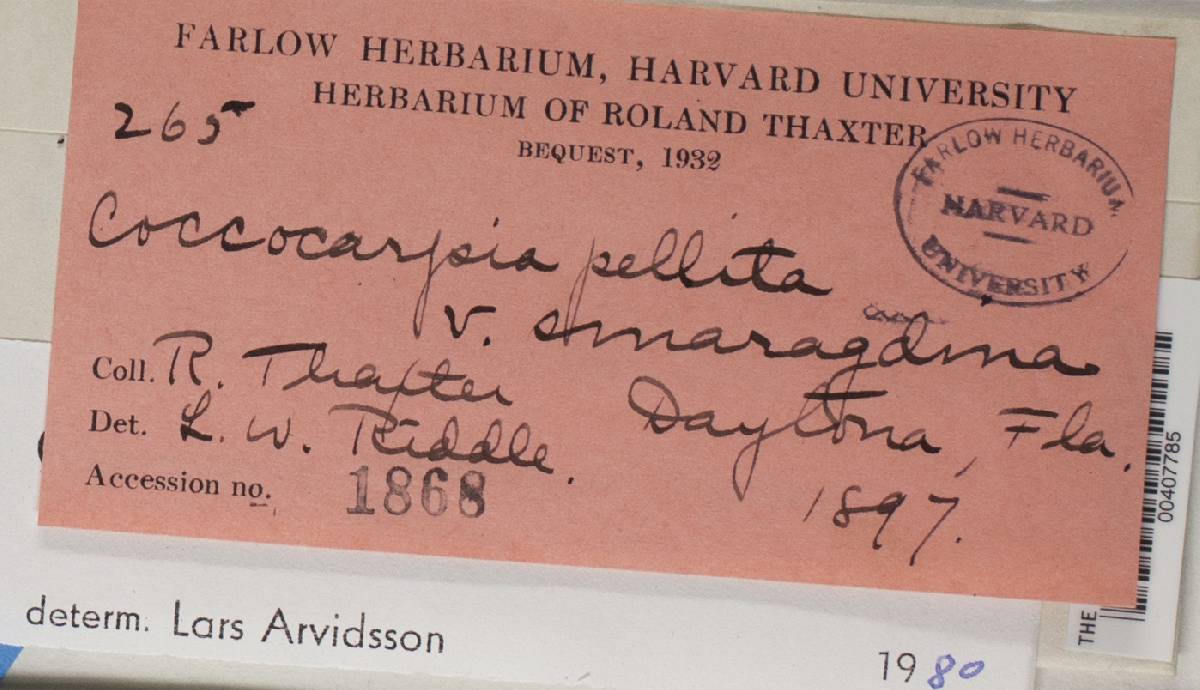 FARLOW HERBARIUM, HARVARD UNIVERSITY
HERBARIUM OF ROLAND THAXTER
BEQUEST, 1932
265
FARLOW HERBARIUM
HARVARD
UNIVERSITY
Coccocarpia pellita
v. smaragdina
Coll. R. Thaxter Daytona, Fla.
Det. L. W. Riddle.
1897.
Accession no. 1868
00407785
THE
determ. Lars Arvidsson
1980